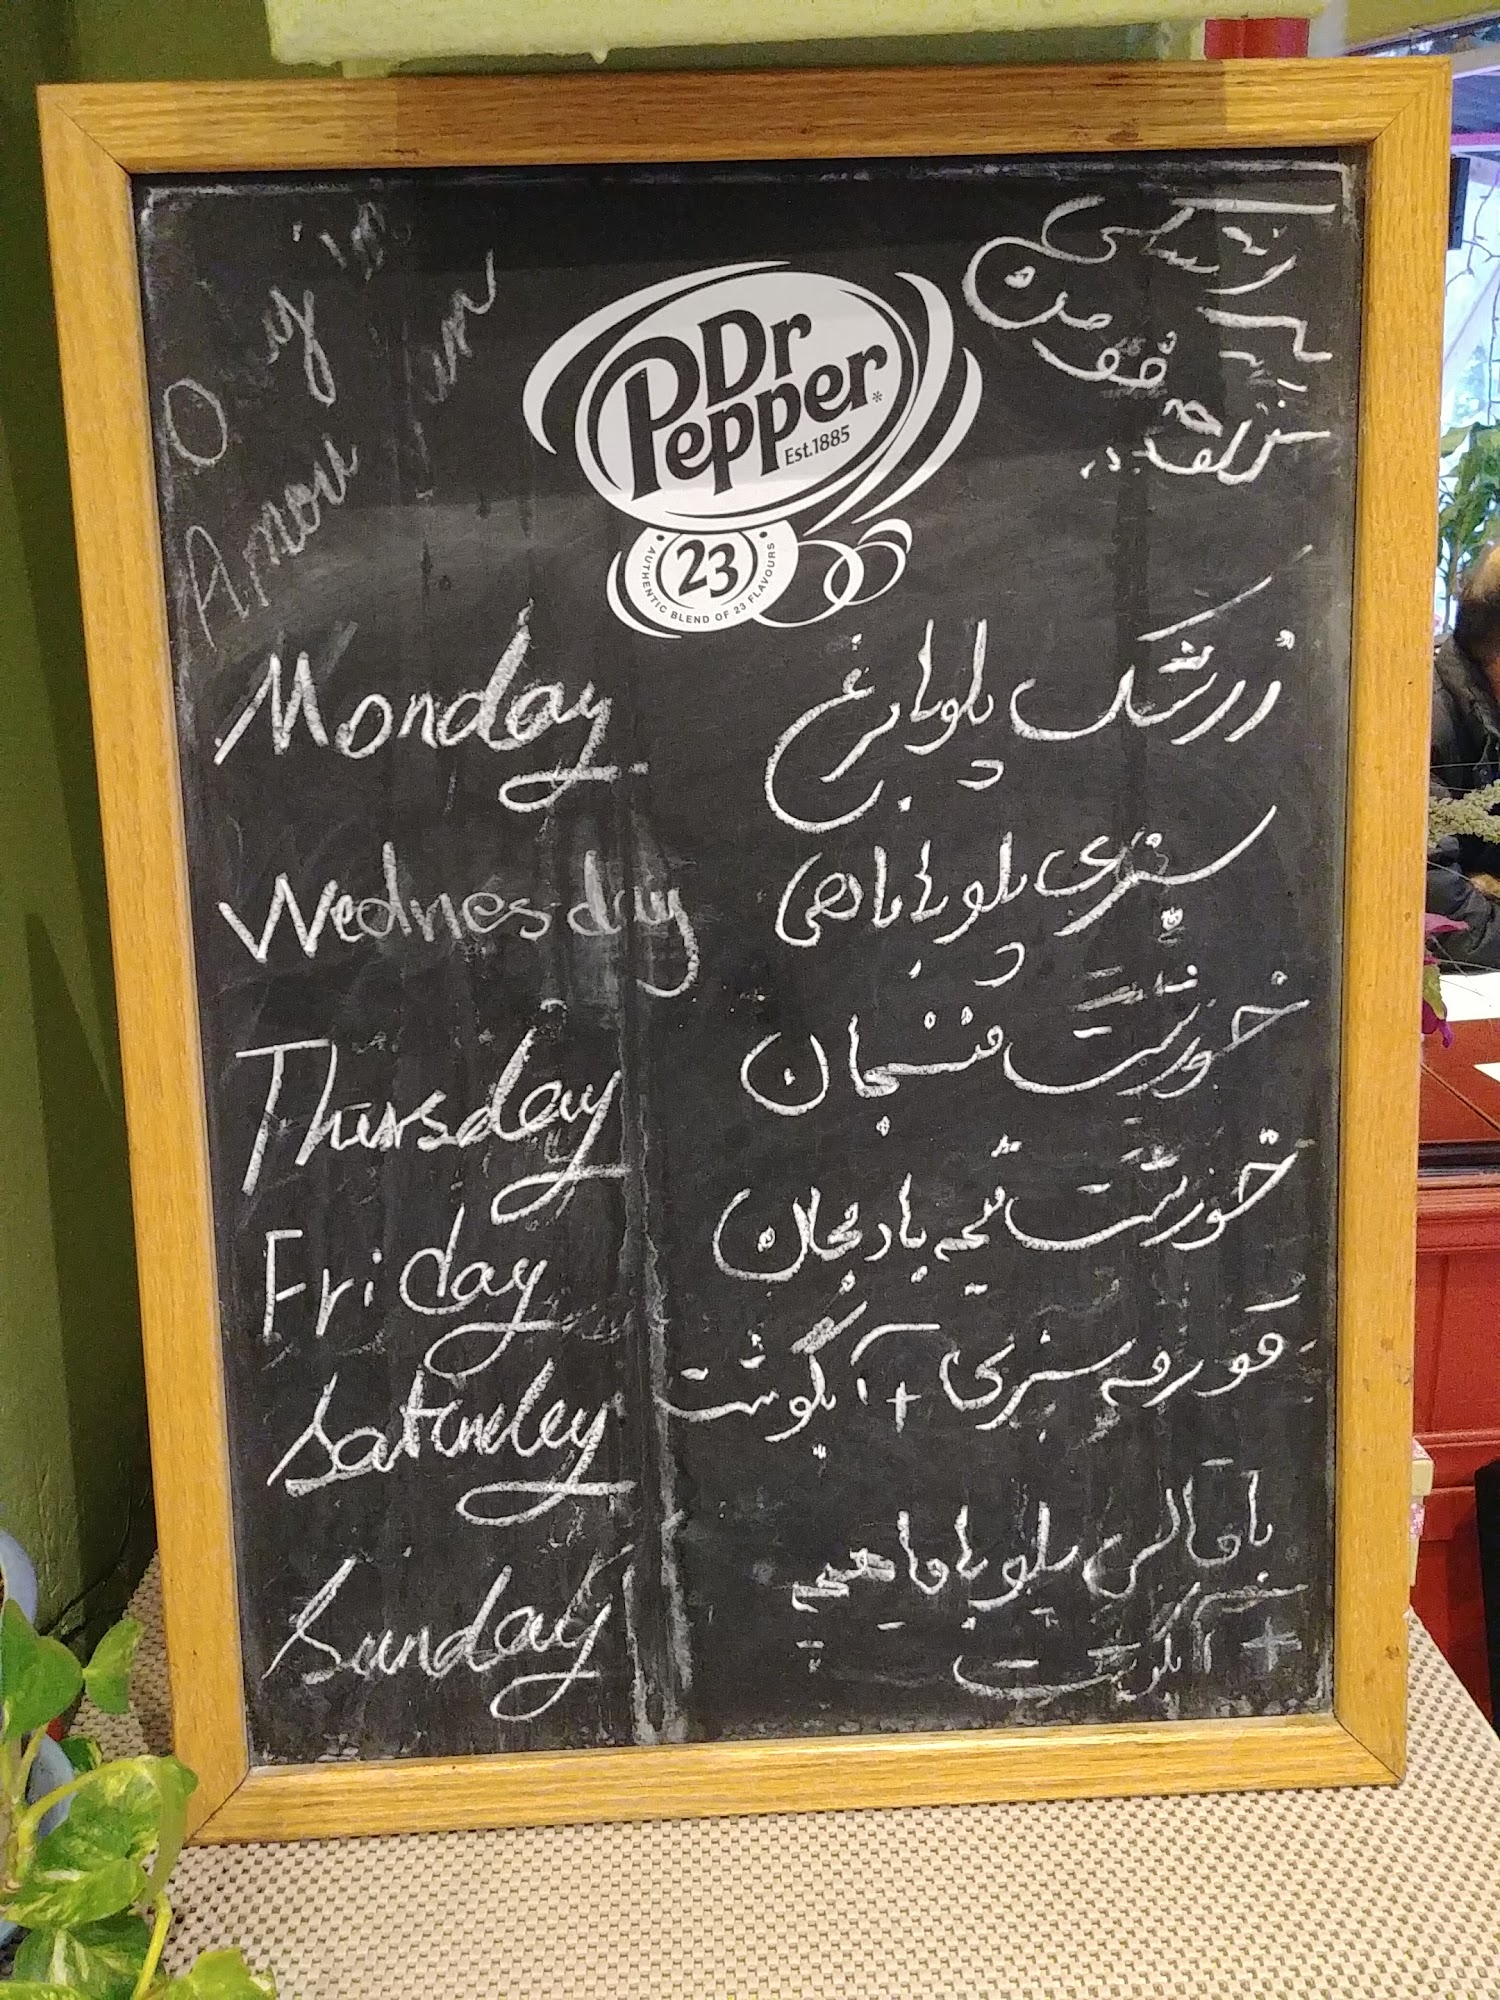 Dr
Pepper
Est.1885
23
AUTHENTIC BLEND OF 23 FLAVOURS
Monday زرشک پلو با مرغ
Wednesday سبزی پلو با ماهی
Thursday خورشت فسنجان
Friday خورشت قیمه بادمجان
Saturday قورمه سبزی + آبگوشت
Sunday باقالی پلو با ماهیچه
+ آبگوشت